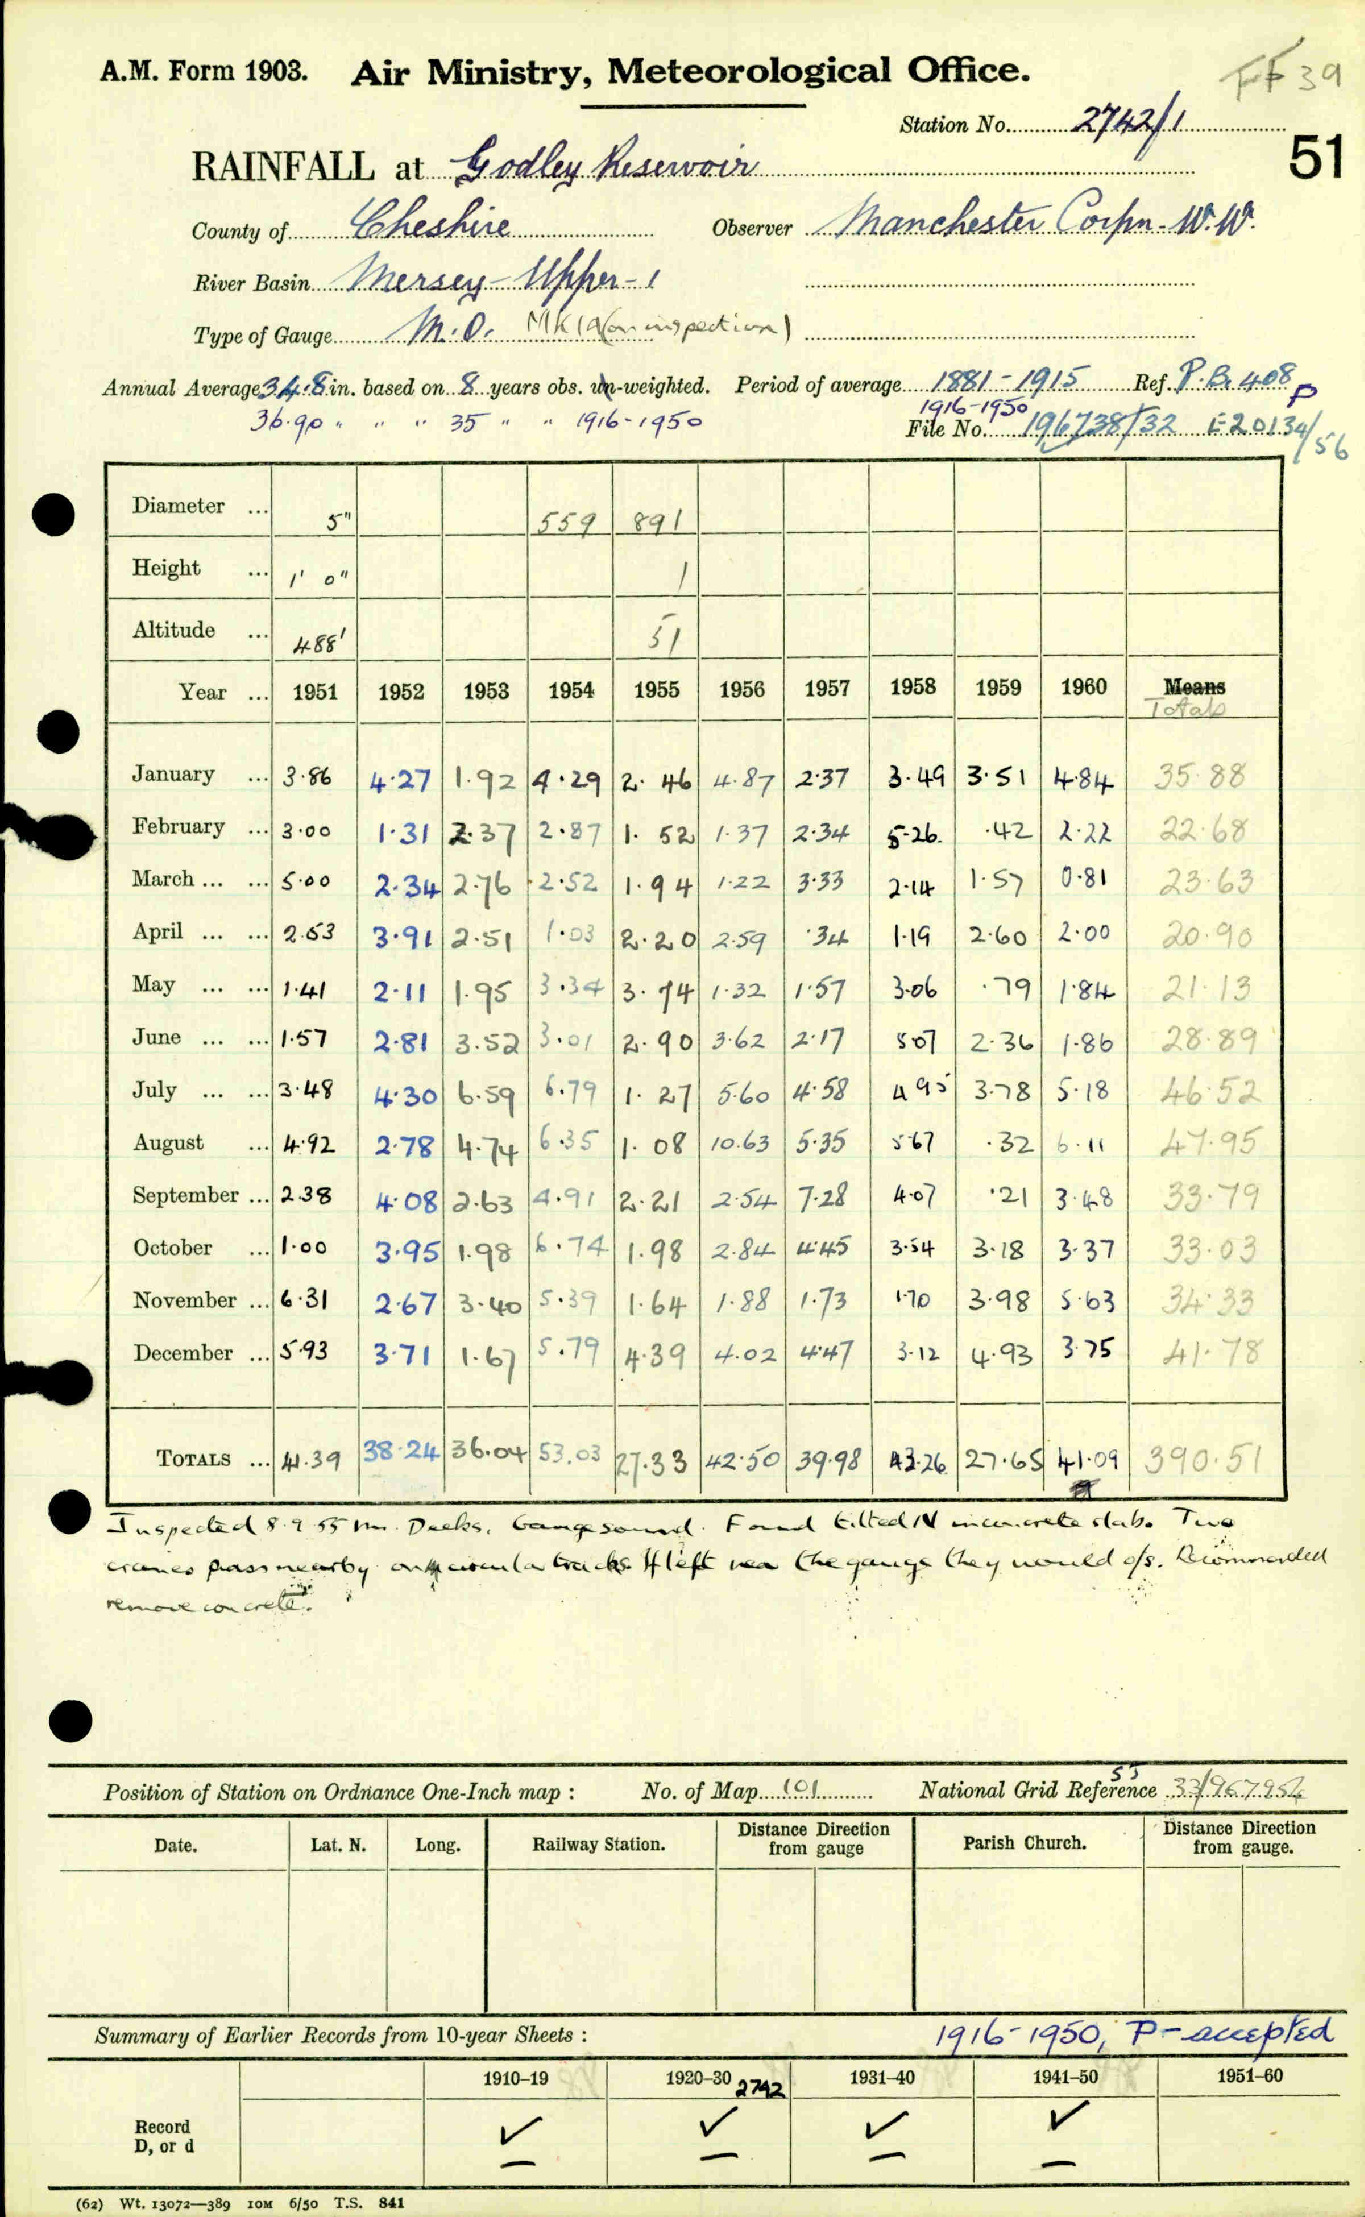 A.M. Form 1903. Air Ministry, Meteorological Office. FF 39
Station No. 2742/1
51
RAINFALL at Godley Reservoir
County of Cheshire Observer Manchester Corpn. W.W.
River Basin Mersey-Upper-1
Type of Gauge M.O. MK1A (on inspection)
Annual Average 34.8 in. based on 8 years obs. un-weighted. Period of average 1881-1915 Ref. P.B. 408 P
36.90 " " " 35 " " 1916-1950 1916-1950
File No. 196738/32 E20134/56
Diameter ... 5" 559 891
Height ... 1' 0" 1
Altitude ... 488' 51
Year ... 1951 1952 1953 1954 1955 1956 1957 1958 1959 1960 Means
Totals
January ... 3.86 4.27 1.92 4.29 2.46 4.87 2.37 3.49 3.51 4.84 35.88
February ... 3.00 1.31 2.37 2.87 1.52 1.37 2.34 5.26 .42 2.22 22.68
March ... ... 5.00 2.34 2.76 2.52 1.94 1.22 3.33 2.14 1.57 0.81 23.63
April ... ... 2.53 3.91 2.51 1.03 2.20 2.59 .34 1.19 2.60 2.00 20.90
May ... ... 1.41 2.11 1.95 3.34 3.74 1.32 1.57 3.06 .79 1.84 21.13
June ... ... 1.57 2.81 3.52 3.01 2.90 3.62 2.17 5.07 2.36 1.86 28.89
July ... ... 3.48 4.30 6.59 6.79 1.27 5.60 4.58 4.95 3.78 5.18 46.52
August ... 4.92 2.78 4.74 6.35 1.08 10.63 5.35 5.67 .32 6.11 47.95
September ... 2.38 4.08 2.63 4.91 2.21 2.54 7.28 4.07 .21 3.48 33.79
October ... 1.00 3.95 1.98 6.74 1.98 2.84 4.45 3.54 3.18 3.37 33.03
November ... 6.31 2.67 3.40 5.39 1.64 1.88 1.73 1.70 3.98 5.63 34.33
December ... 5.93 3.71 1.67 5.79 4.39 4.02 4.47 3.12 4.93 3.75 41.78
TOTALS ... 41.39 38.24 36.04 53.03 27.33 42.50 39.98 43.26 27.65 41.09 390.51
Inspected 8.9.55 Mr. Deeks. Gauge sound. Found tilted N in concrete slab. Two
cranes pass nearby on circular tracks. If left near the gauge they would o/s. Recommended
remove concrete.
Position of Station on Ordnance One-Inch map : No. of Map 101 National Grid Reference 33/967954
SJ
Date. Lat. N. Long. Railway Station. Distance Direction from gauge Parish Church. Distance Direction from gauge.
Summary of Earlier Records from 10-year Sheets : 1916-1950, P-accepted
1910–19 1920–30 2742 1931–40 1941–50 1951–60
Record ✓ ✓ ✓ ✓
D, or d — — — —
(62) Wt. 13072—389 10M 6/50 T.S. 841